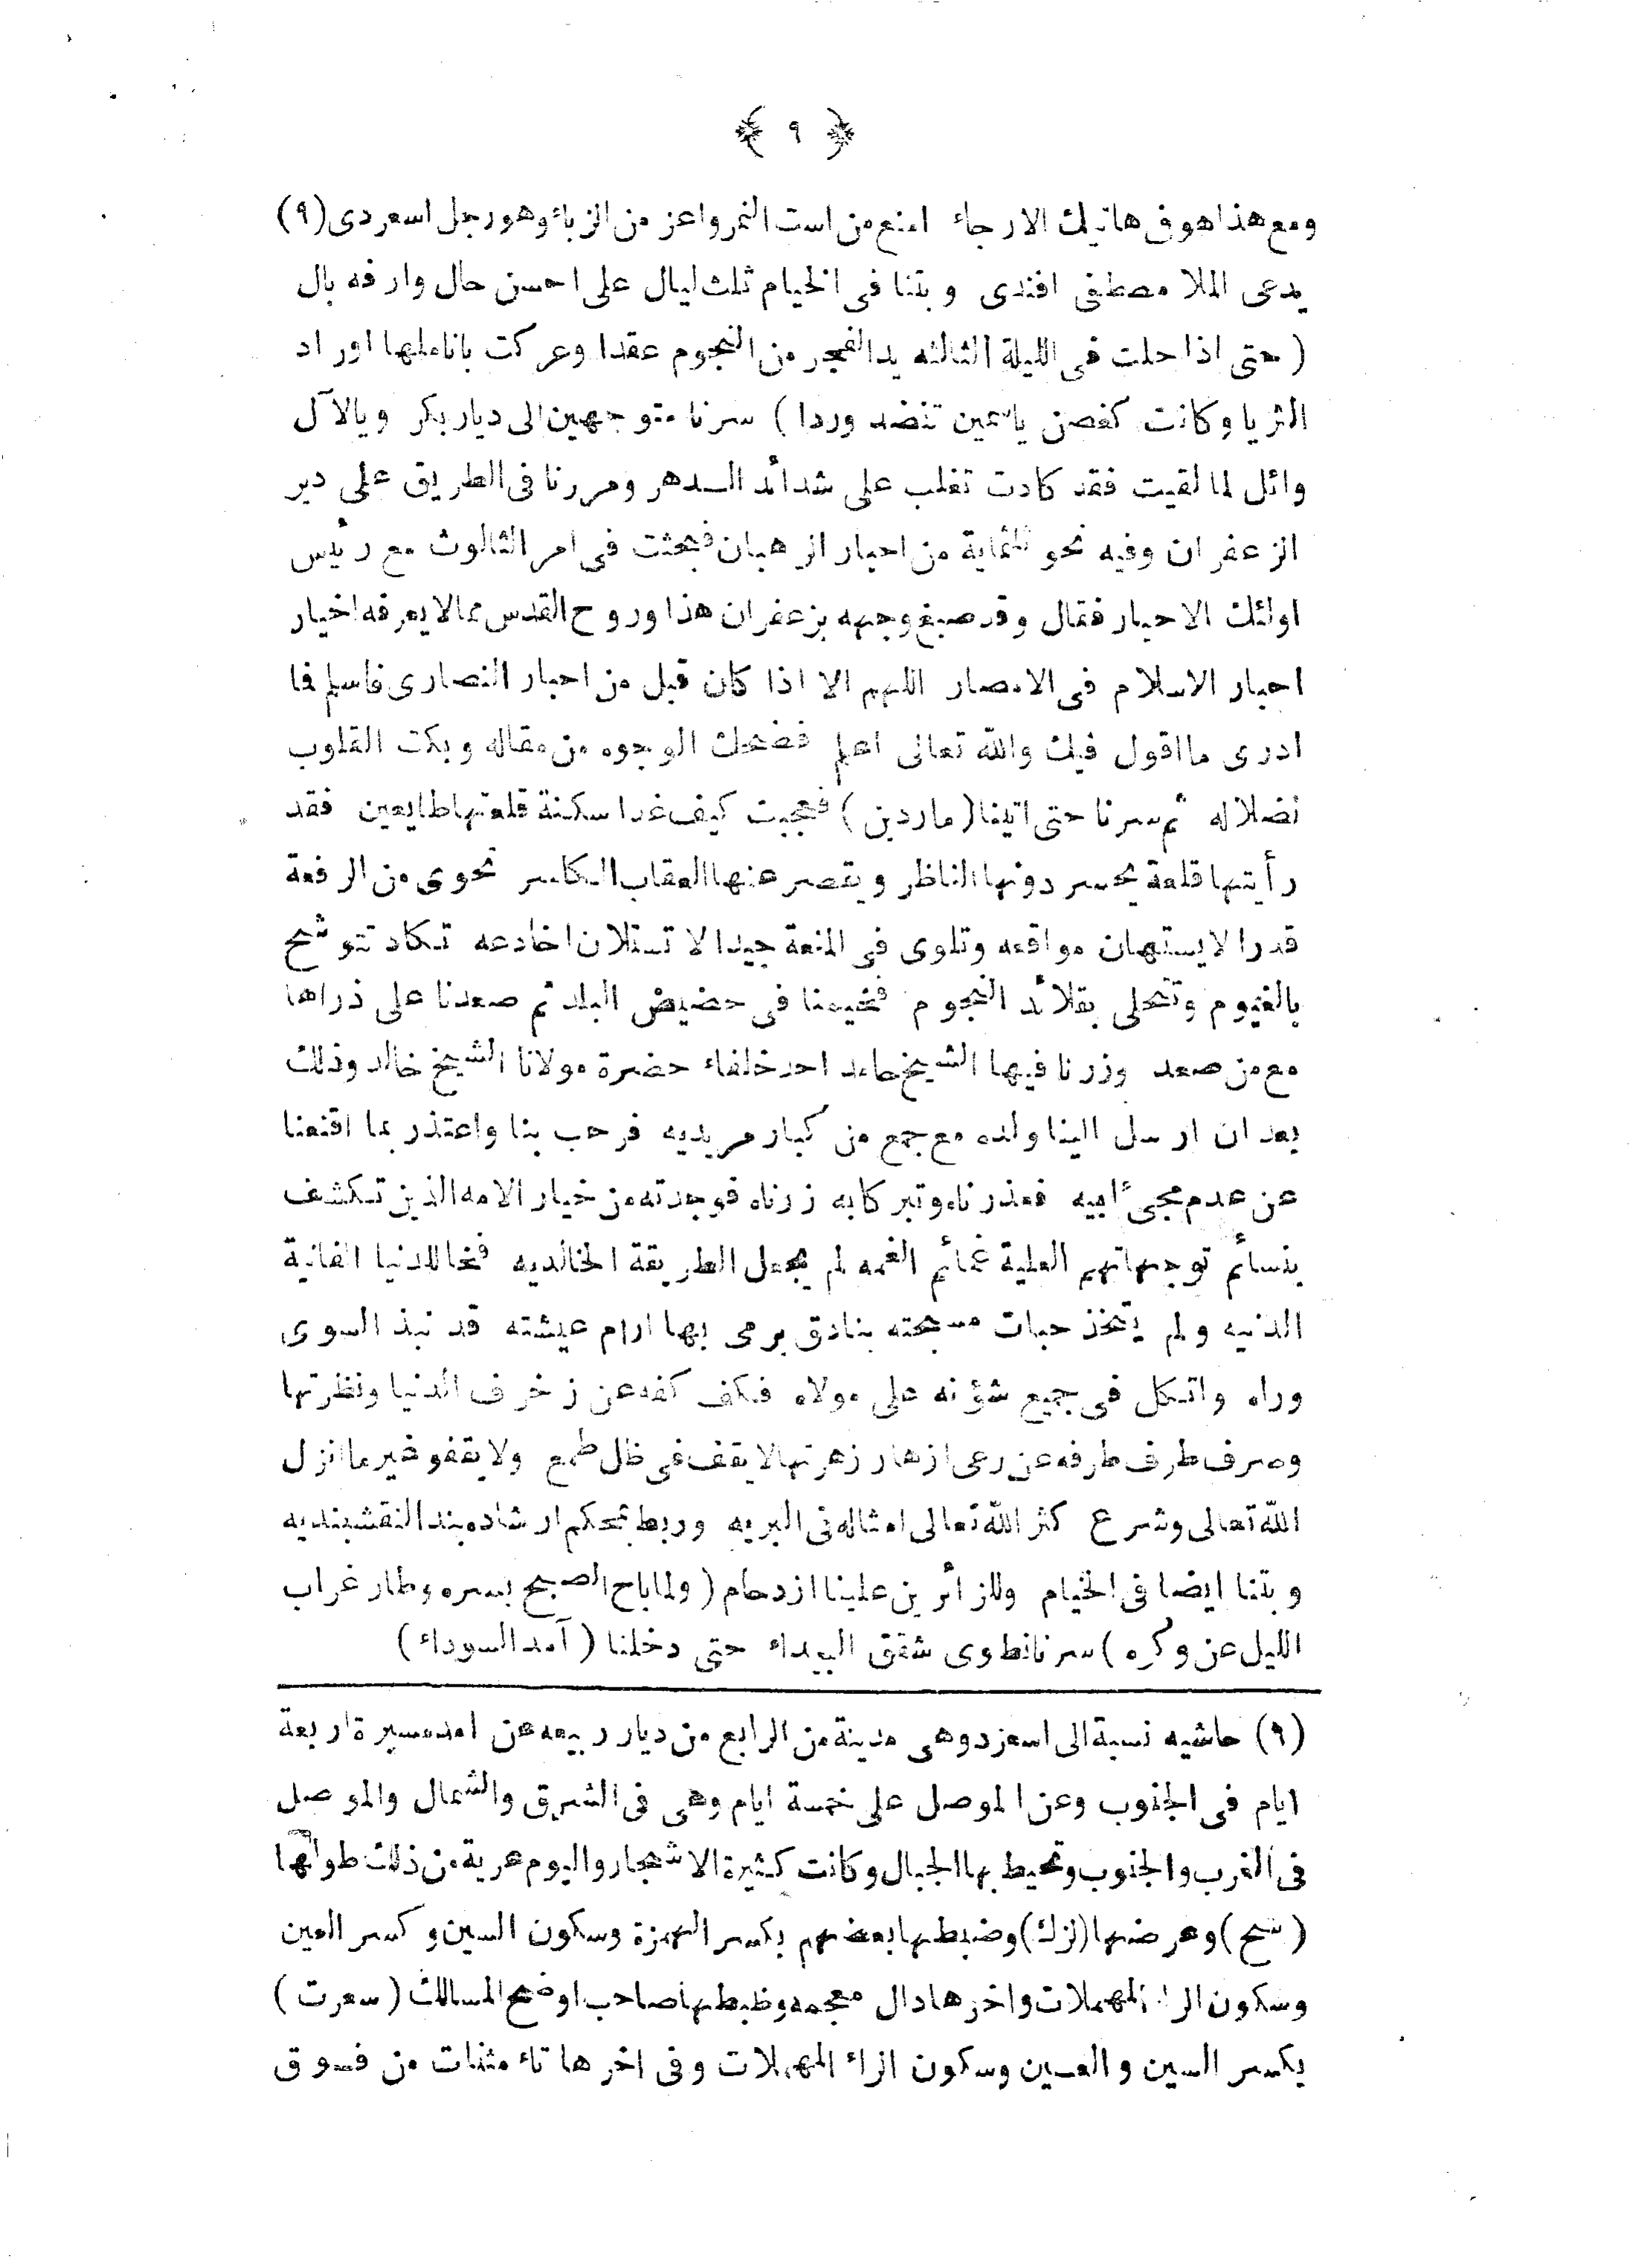 ﴿ ٩ ﴾
ومع هذا هو فى هاتيك الارجاء امنع من است النمر واعز من الزباء وهو رجل اسعردى (٩)
يدعى الملا مصطفى افندى وبتنا فى الخيام ثلث ليال على احسن حال وارفه بال
( حتى اذا حلت فى الليلة الثالثه يد الفجر من النجوم عقدا وعركت باناملها اوراد
الثريا وكانت كغصن ياسمين تنضد وردا ) سرنا متوجهين الى ديار بكر ويالآل
وائل لما لقيت فقد كادت تغلب على شدائد الدهر ومررنا فى الطريق على دير
الزعفران وفيه نحو ثلثماية من احبار الرهبان فبحثت فى امر الثالوث مع رئيس
اولئك الاحبار فقال وقد صبغ وجهه بزعفران هذا وروح القدس مما لا يعرفه اخيار
احبار الاسلام فى الامصار اللهم الا اذا كان قبل من احبار النصارى فاسلم فما
ادرى ما اقول فيك والله تعالى اعلم فضحك الوجوه من مقاله وبكت القلوب
لضلاله ثم سرنا حتى اتينا (ماردين) فعجبت كيف غدا سكنة قلعتها طايعين فقد
رأيتها قلعة يحسر دونها الناظر ويقصر عنها العقاب الكاسر تحوى من الرفعة
قدرا لا يستهان مواقعه وتلوى فى المنعة جيدا لا تستلان اخادعه تكاد تتوشح
بالغيوم وتتحلى بقلائد النجوم فخيمنا فى حضيض البلد ثم صعدنا على ذراها
مع من صعد وزرنا فيها الشيخ حامد احد خلفاء حضرة مولانا الشيخ خالد وذلك
بعد ان ارسل الينا ولده مع جمع من كبار مريديه فرحب بنا واعتذر بما اقنعنا
عن عدم مجئ ابيه فعذرناه وتبركا به زرناه فوجدته من خيار الامه الذين تكشف
بنسائم توجهاتهم العلية غمائم الغمه لم يجعل الطريقة الخالديه فخا للدنيا الفانية
الدنيه ولم يتخذ حبات مسبحته بنادق يرمى بها ارام عيشته قد نبذ السوى
وراه واتكل فى جميع شؤنه على مولاه فكف كفه عن زخرف الدنيا ونظرتها
وصرف طرف طرفه عن رعى ازهار زهرتها لا يقف فى ظل طمع ولا يقفو غير ما انزل
الله تعالى وشرع كثر الله تعالى امثاله فى البريه وربط بمحكم ارشاده بند النقشبنديه
وبتنا ايضا فى الخيام وللزائرين علينا ازدحام ( ولما باح الصبح بسره وطار غراب
الليل عن وكره ) سرنا نطوى شقق البيداء حتى دخلنا ( آمد السوداء )
(٩) حاشيه نسبة الى اسعرد وهى مدينة من الرابع من ديار ربيعه عن امد مسيرة اربعة
ايام فى الجنوب وعن الموصل على خمسة ايام وهى فى الشرق والشمال والموصل
فى الغرب والجنوب وتحيط بها الجبال وكانت كثيرة الاشجار واليوم عرية من ذلك طولها
( سح ) وعرضها (لزك) وضبطها بعضهم بكسر الهمزة وسكون السين وكسر العين
وسكون الراء المهملات واخرها دال معجمه وظبطها صاحب اوضح المسالك ( سعرت )
بكسر السين والعين وسكون الراء المهملات وفى اخرها تاء مثنات من فوق